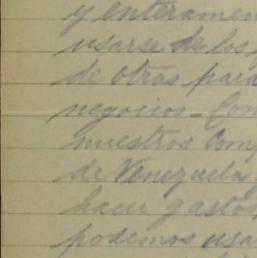 y enteramen
usarse de los
de otras para
negocios_ Con
nuestros comp
de Venezuela
hacer gastos
podemos usa